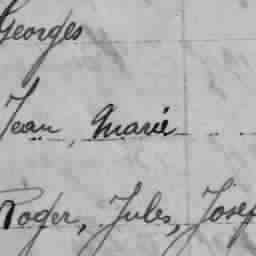 Georges
Jean, Marie
Roger, Jules, Josef